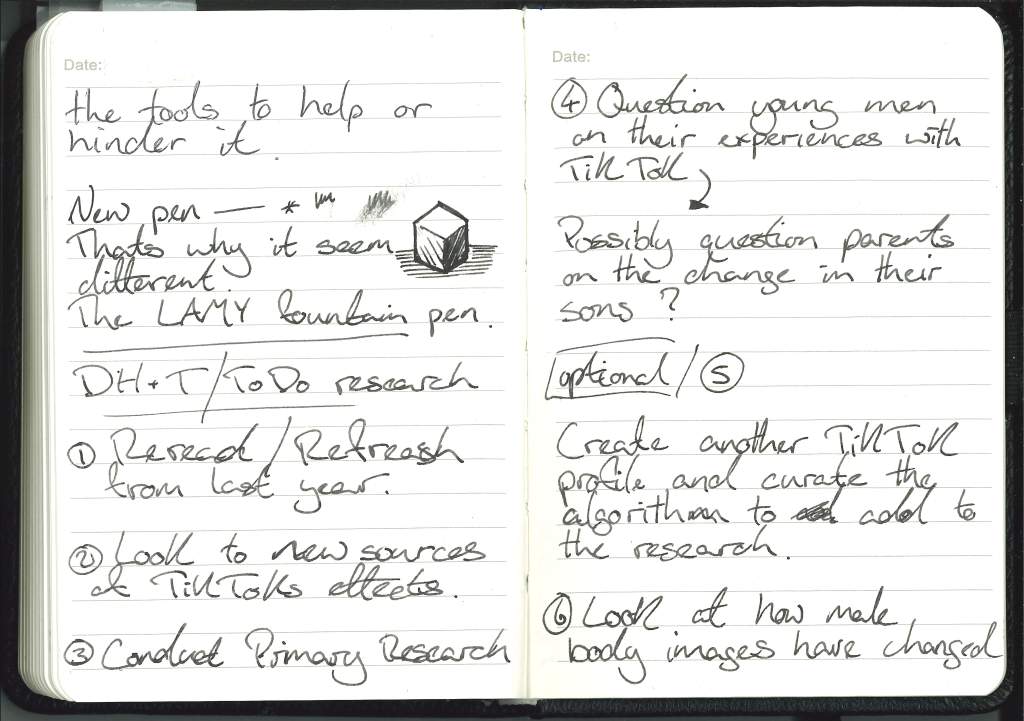 Date:
the tools to help or
hinder it.
New pen — *
Thats why it seem
different.
The LAMY fountain pen.
DH+T/ToDo research
① Reread/Refreash
from last year.
② Look to new sources
of TikToks effects.
③ Conduct Primary Research
Date:
④ Question young men
on their experiences with
TikTok
Possibly question parents
on the change in their
sons?
optional/⑤
Create another TikTok
profile and curate the
algorithm to add to
the research.
⑥ Look at how male
body images have changed